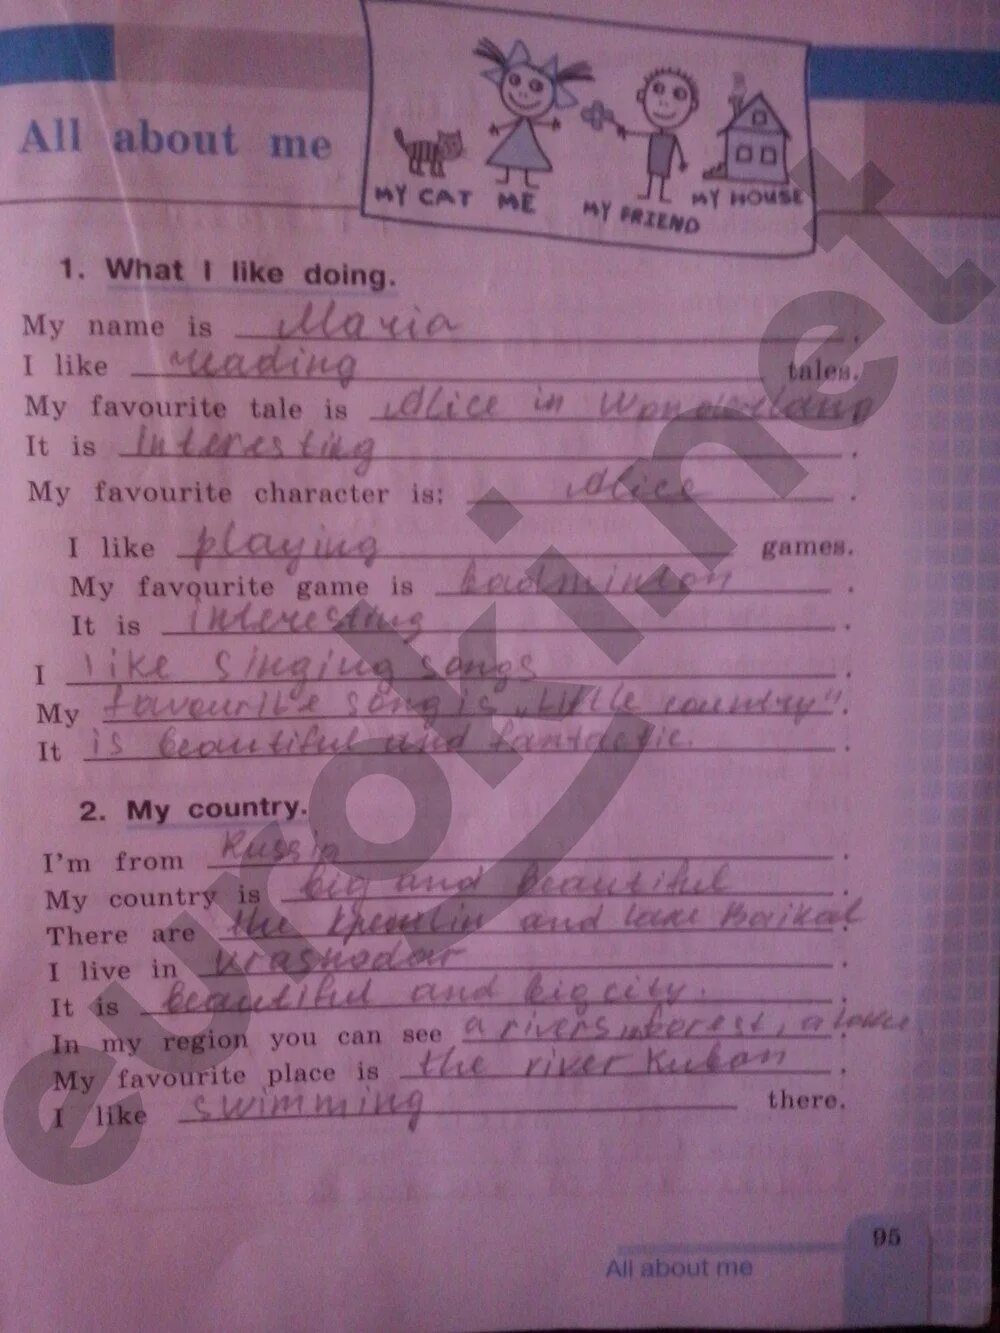 All about me
MY CAT ME MY FRIEND MY HOUSE
1. What I like doing.
My name is Maria.
I like reading tales.
My favourite tale is Alice in Wonderland
It is interesting.
My favourite character is: Alice.
I like playing games.
My favourite game is badminton.
It is interesting.
I like singing songs.
My favourite song is „Little country".
It is beautiful and fantastic.
2. My country.
I'm from Russia.
My country is big and beautiful.
There are the Kremlin and lake Baikal.
I live in Krasnodar.
It is beautiful and big city.
In my region you can see a rivers, forest, a lake
My favourite place is the river Kuban.
I like swimming there.
95
All about me
euroki.net